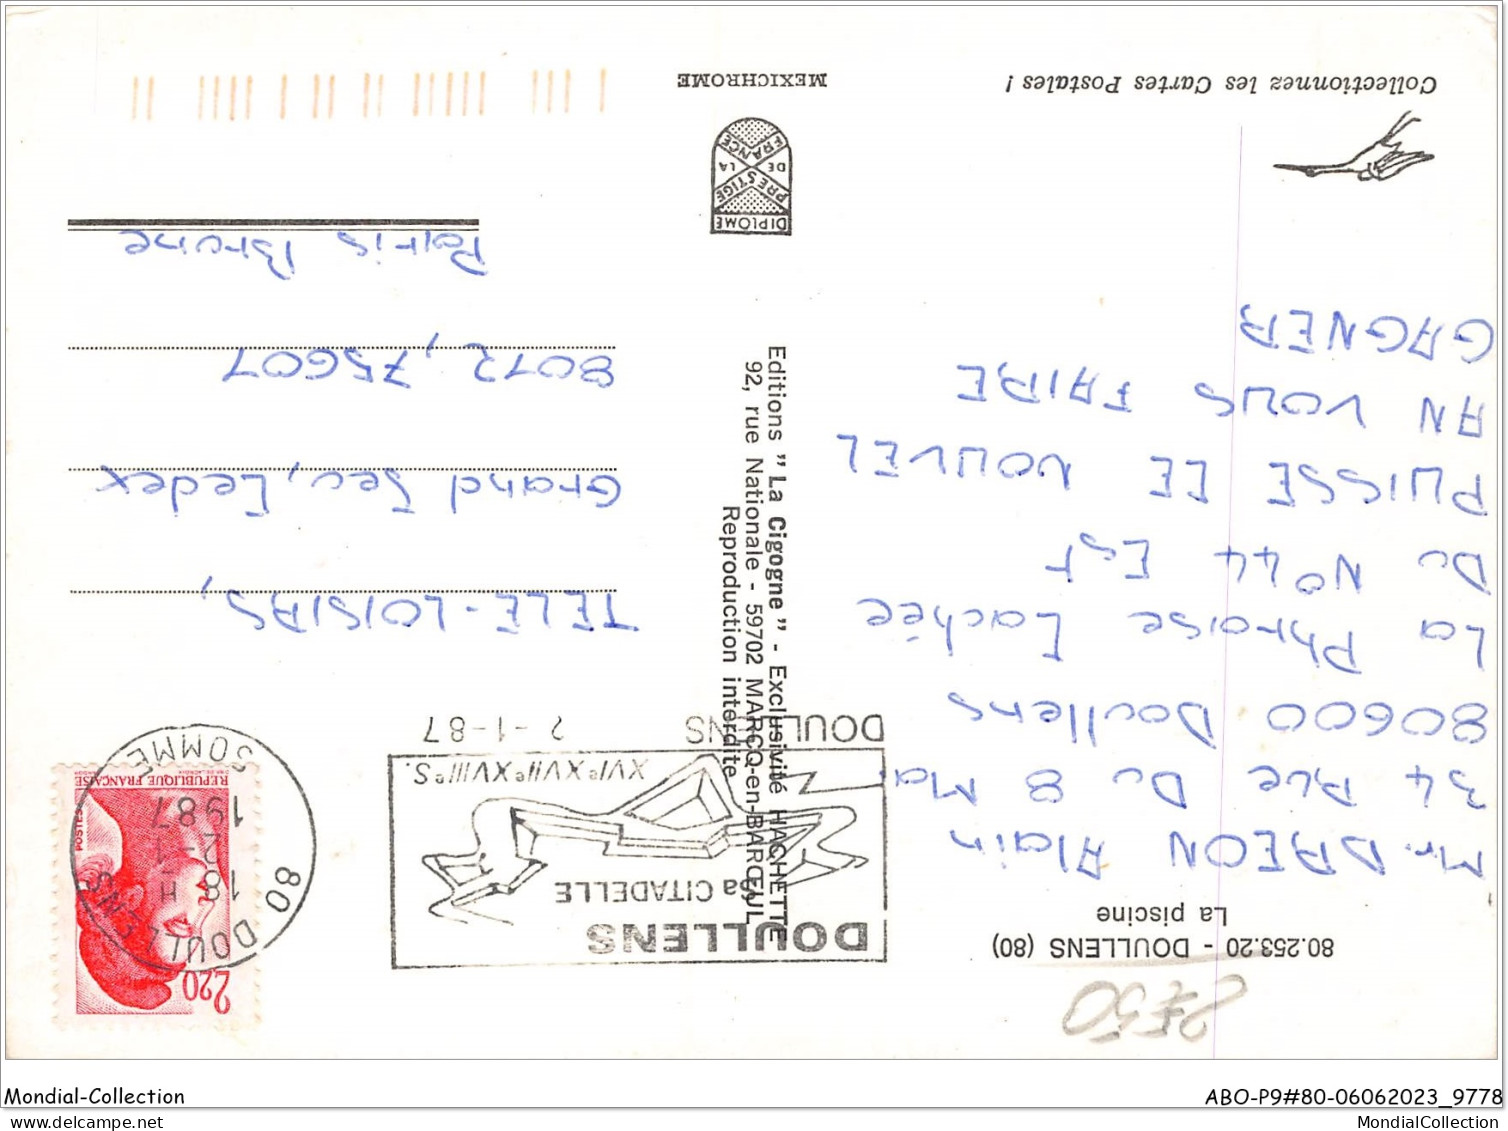 80.253.20 - DOULLENS (80)
La piscine
2F50
Mr. DREON Alain
34 Rue Du 8 Mai
80600 Doullens
La Phraise Cachée
Du N° 44 Est
PUISSE LE NOUVEL
AN VOUS FAIRE
GAGNER
Collectionnez les Cartes Postales !
Editions " La Cigogne " - Exclusivité HACHETTE
92, rue Nationale - 59702 MARCQ-en-BARŒUL
Reproduction interdite
DIPLOME
PRESTIGE
DE LA
FRANCE
MEXICHROME
DOULLENS
La CITADELLE
XVIᵉ XVIIᵉ XVIIIᵉ S.
DOULLENS 2-1-87
80 DOULLENS
18 H
2-1
1987
SOMME
2,20
REPUBLIQUE FRANÇAISE
POSTES
TELE-LOISIRS,
Grand Jeu, Cedex
8072, 75607
Paris Brune
Mondial-Collection
ABO-P9#80-06062023_9778
MondialCollection